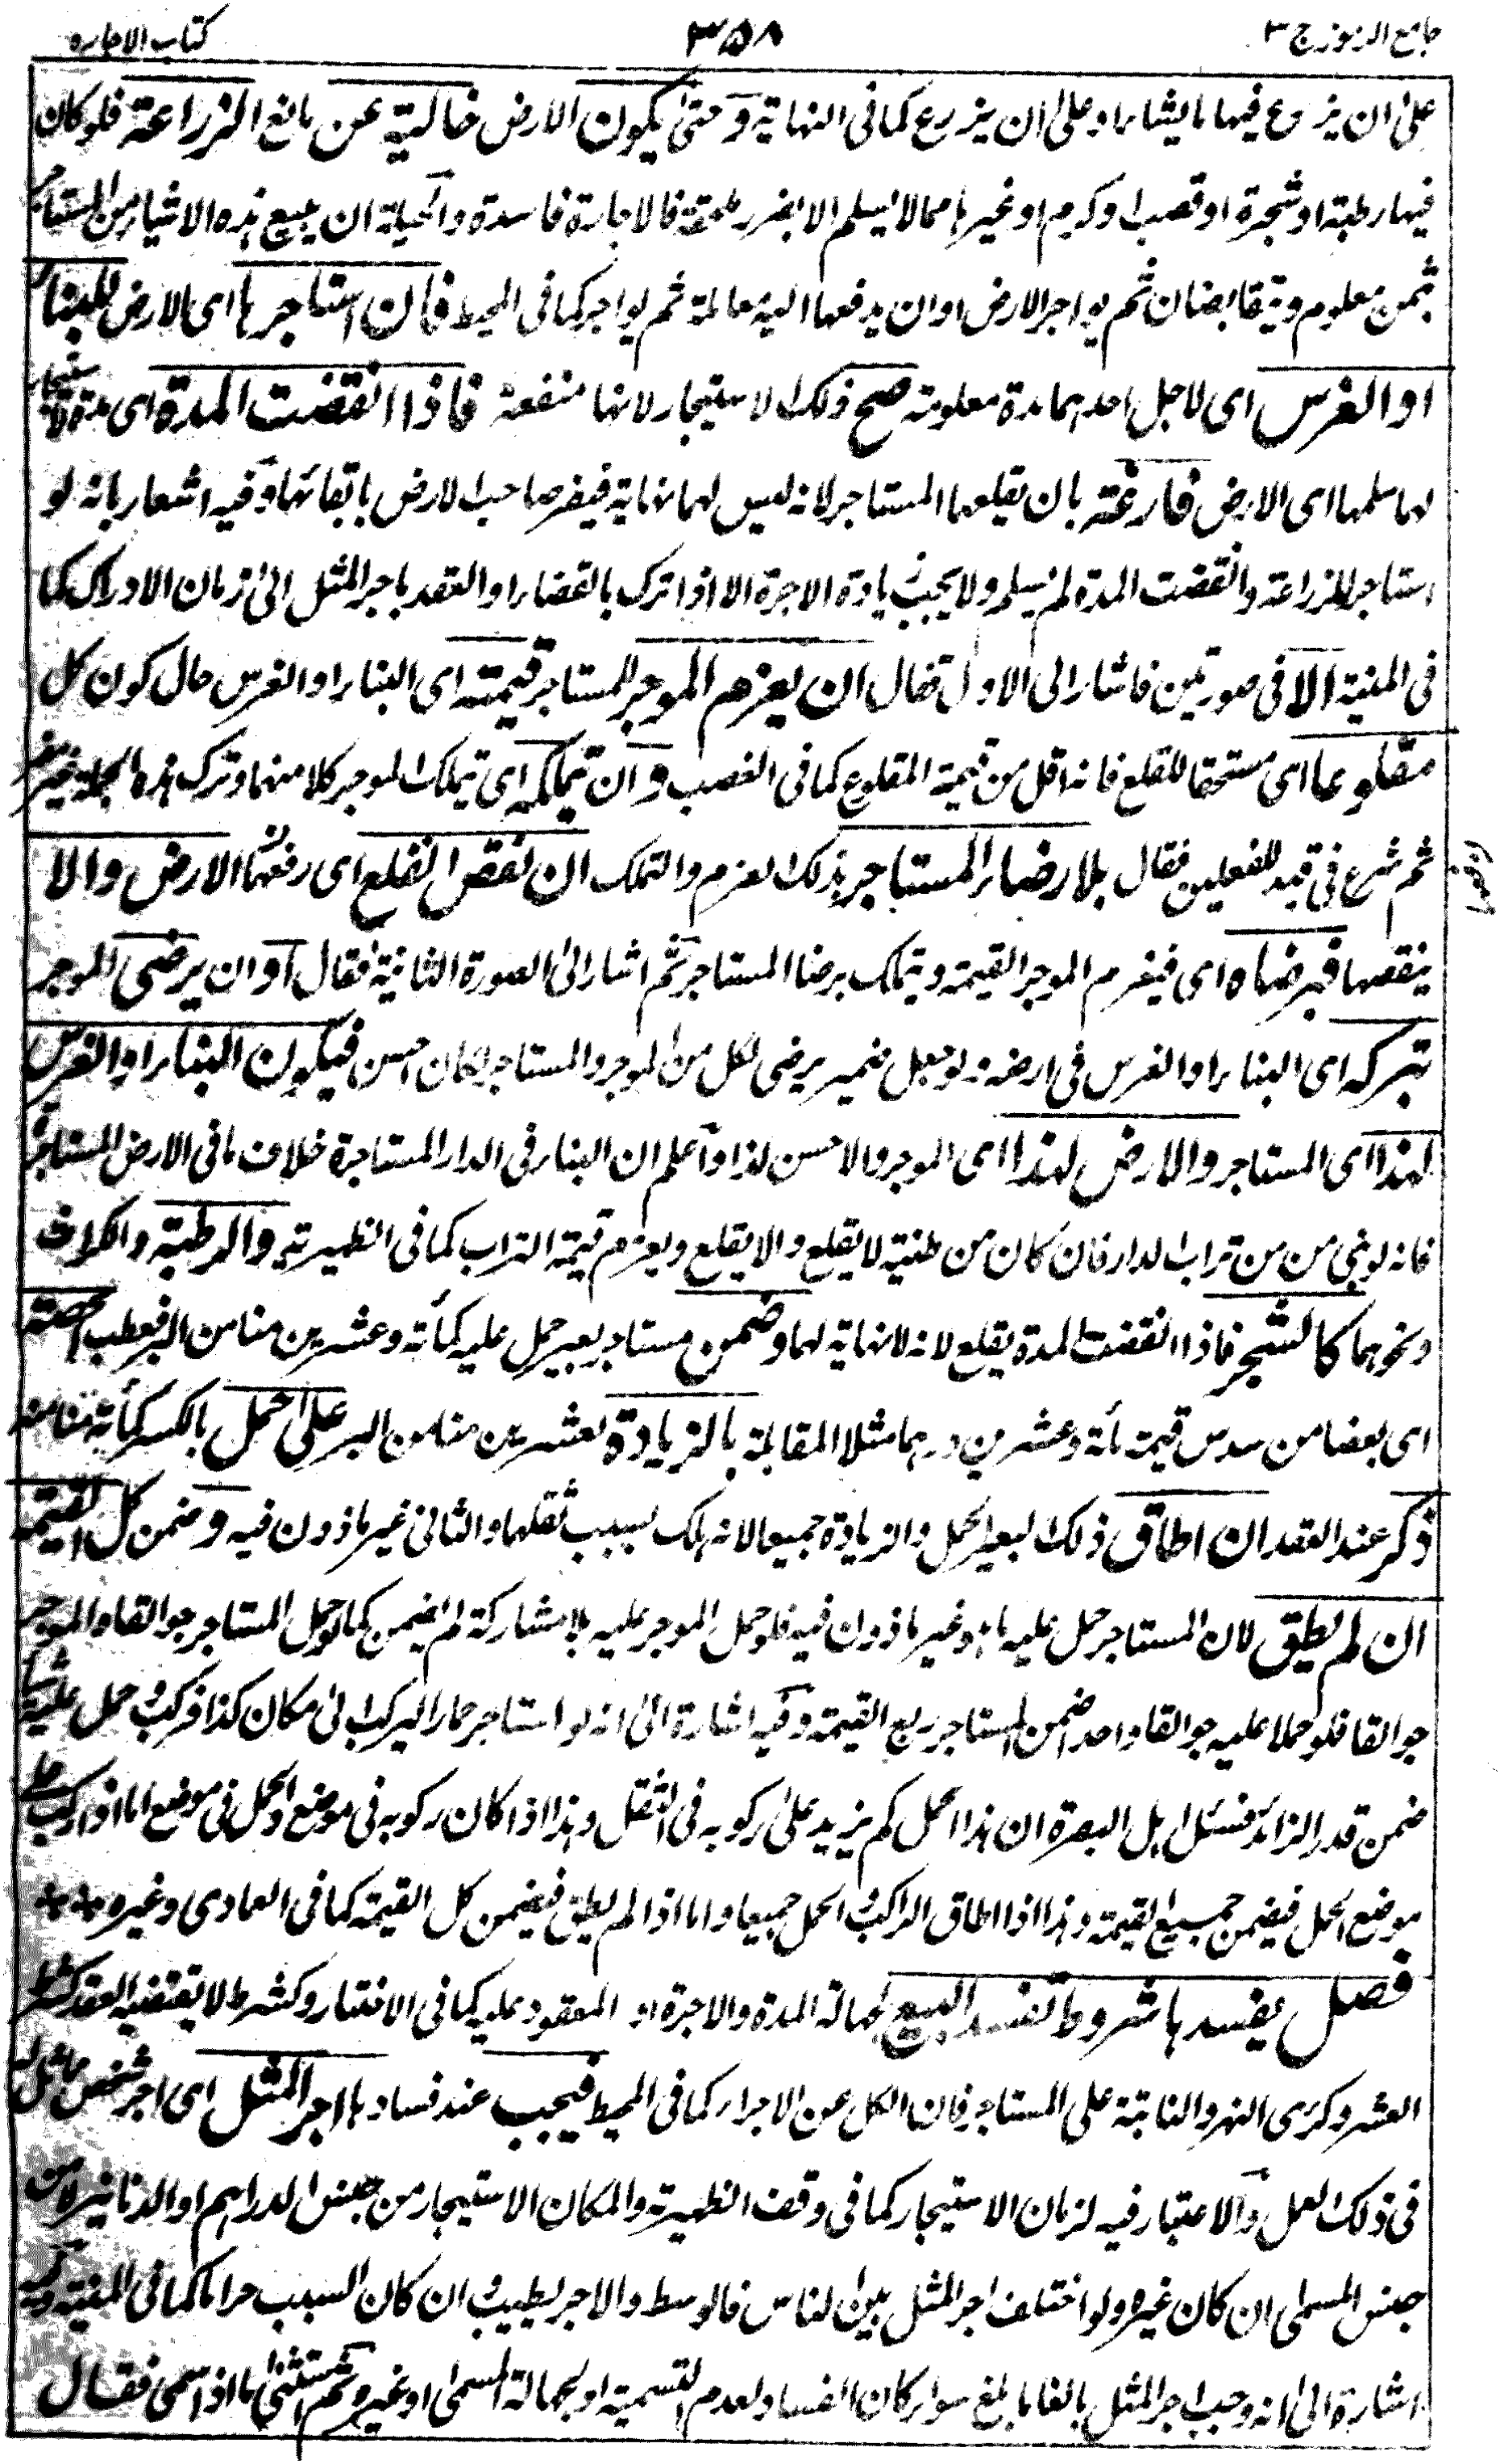 جامع الرموز ج ٣
٣٥٨
كتاب الاجاره
على ان يزرع فيها ما يشاء او على ان يزرع كما فى النهاية وحتى يكون الارض خالية عن مانع الزراعة فلو كان
فيها رطبة او شجرة او قصب او كرم او غيرها مما لا يسلم الا بضرر ملحقة فالاجارة فاسدة والحيلة ان يبيع هذه الاشياء من المستاجر
بثمن معلوم ويتقابضان ثم يواجر الارض او ان يدفعها اليه معاملة ثم يواجر كما فى المحيط فان استاجرها اى الارض للبناء
او الغرس اى لاجل احدهما مدة معلومة صح ذلك الاستيجار لانها منفعة فاذا انقضت المدة اى مدة
لهما سلمها اى الارض فارغة بان يقلعها المستاجر لانه ليس لهما نهاية فيضر صاحب الارض بابقائها وفيه اشعار بانه لو
استاجر للزراعة وانقضت المدة لم يسلم ولا يجب زيادة الاجرة الا اذا ترك بالقضاء او العقد باجر المثل الى زمان الادراك كما
فى المنية الا فى صورتين فاشار الى الاول فقال ان يغرم الموجر للمستاجر قيمته اى البناء او الغرس حال كون كل
مقلوعا اى مستحقا للقلع فانه اقل من قيمة المقلوع كما فى الغصب وان يتملكه اى يتملك الموجر كلا منهما وترك هذه الجملة غير
ثم شرع فى قيد للفعلين فقال بلا رضاء المستاجر بذلك الغرم والتملك ان نقص القلع اى رفعهما الارض والا
ينقصها فبرضاه اى فيغرم الموجر القيمة ويتملك برضا المستاجر ثم اشار الى الصورة الثانية فقال او ان يرضى الموجر
بتركه اى البناء او الغرس فى ارضه ولو جعل ضمير يرضى لكل من الموجر والمستاجر لكان احسن فيكون البناء او الغرس
لهذا اى المستاجر والارض لهذا اى الموجر والاحسن لذا واعلم ان البناء فى الدار المستاجرة خلاف ما فى الارض المستاجرة
فانه لو بنى من من تراب الدار فان كان من طنية لا يقلع والا يقلع ويغرم قيمة التراب كما فى الظهيرية والرطبة والكراث
ونحوهما كالشجر فاذا انقضت المدة يقلع لانه لا نهاية لهما وضمن مستاجر بعير حمل عليه كمأته وعشرين منا من البر فعطب حصته
اى بعضا من سدس قيمة مأة وعشرين درهما مثلا المقابلة بالزيادة لعشرين منا من البر على حمل بالكسر كمأة منا منه
ذكر عند العقد ان اطاق ذلك البعير الحمل والزيادة جميعا لانه هلك بسبب ثقلهما والثانى غير ماذون فيه وضمن كل القيمة
ان لم يطق لان المستاجر حمل عليه ما هو غير ماذون فيه فلو حمل الموجر عليه بلا مشاركة لم يضمن كما لو حمل المستاجر جوالقا والموجر
جوالقا فلو حملا عليه جوالقا واحدا ضمن المستاجر ربع القيمة وفيه اشارة الى انه لو استاجر حمارا ليركب الى مكان كذا فركب وحمل عليه شيئا
ضمن قدر الزائد فسئل اهل البصرة ان هذا الحمل كم يزيد على ركوبه فى الثقل وهذا اذا كان ركوبه فى موضع والحمل فى موضع اما اذا ركب على
موضع الحمل فيضمن جميع القيمة وهذا اذا اطاق الراكب والحمل جميعا واما اذا لم يطق فيضمن كل القيمة كما فى العمادى وغيره
فصل يفسدها شروط تفسد البيع لجهالة المدة والاجرة او المعقود عليه كما فى الاختيار وكشرط لا يقتضيه العقد كشرط
العشر وكرى النهر والنائبة على المستاجر فان الكل عن الاجراء كما فى المحيط فيجب عند فسادها اجر المثل اى اجر شخص مماثل له
فى ذلك العمل والاعتبار فيه لزمان الاستيجار كما فى وقف الظهيرية والمكان الاستيجار من جنس الدراهم او الدنانير لا من
جنس المسمى ان كان غيره ولو اختلف اجر المثل بين الناس فالوسط والاجر يطيب وان كان السبب حراما كما فى المنية وفيه
اشارة الى انه وجب اجر المثل بالغا ما بلغ سواء كان الفساد لعدم التسمية او لجهالة المسمى او غيره ثم استثنى ما اذا سمى فقال